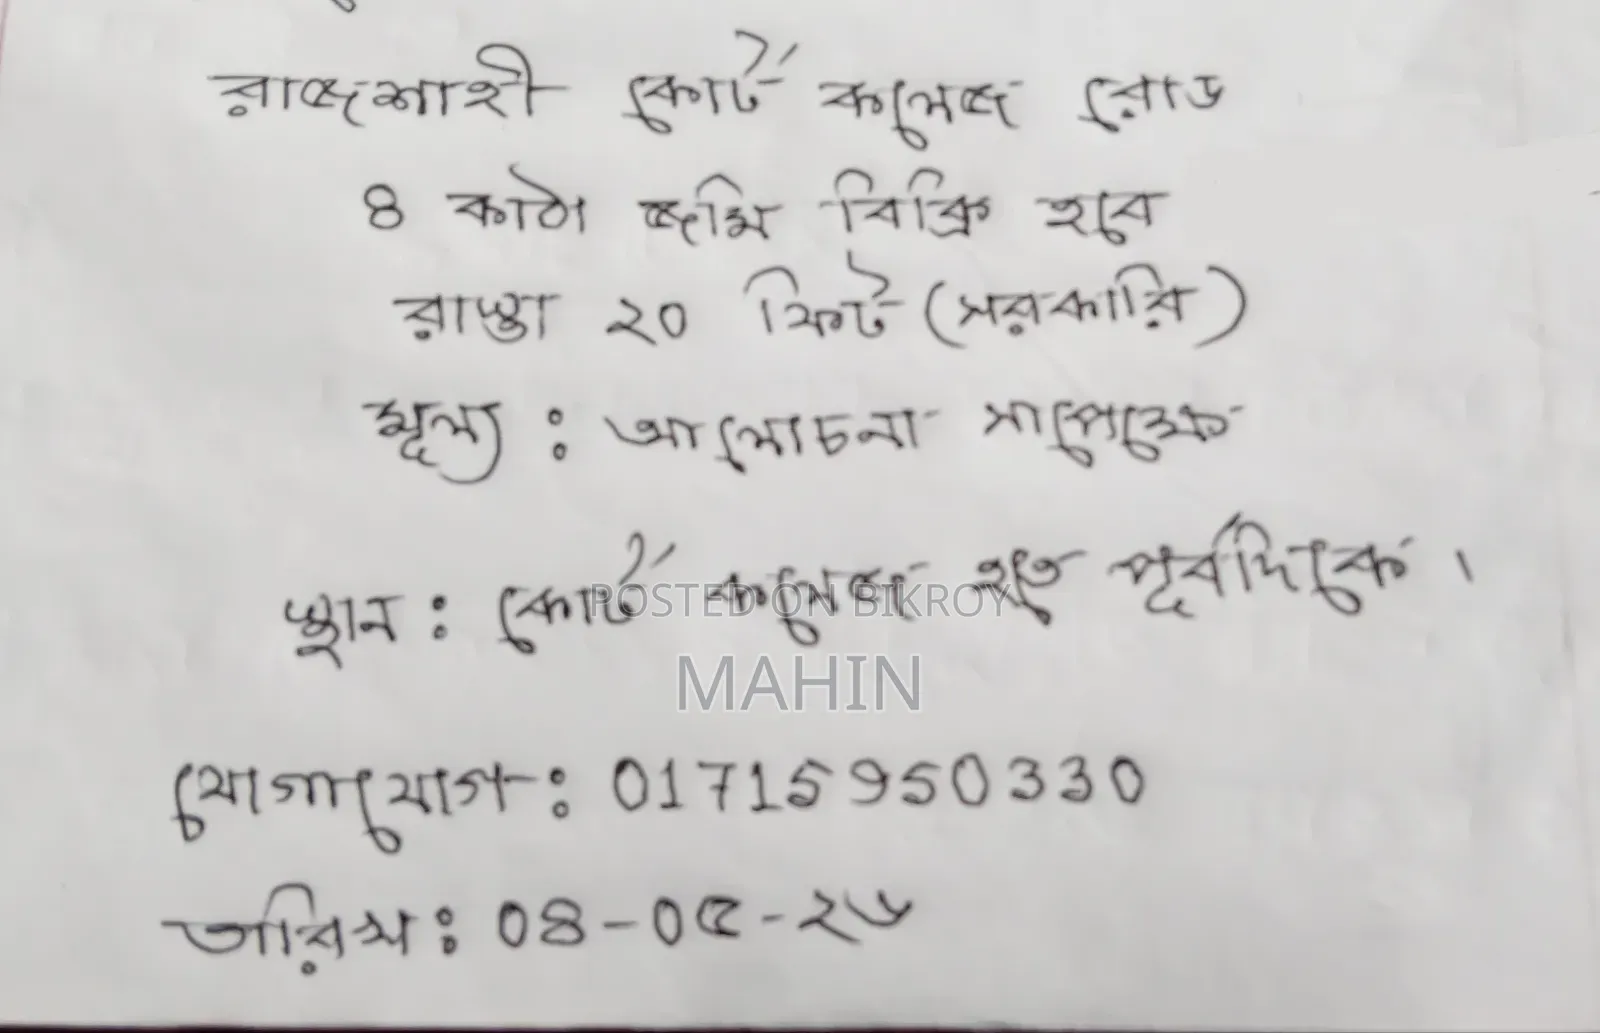 রাজশাহী কোর্ট কলেজ রোড
৪ কাঠা জমি বিক্রি হবে
রাস্তা ২০ ফিট (সরকারি)
মূল্য : আলোচনা সাপেক্ষে
স্থান : কোর্ট কলেজ হতে পূর্বদিকে ।
POSTED ON BIKROY
MAHIN
যোগাযোগ : 01715950330
তারিখ : ০৪-০৫-২৬